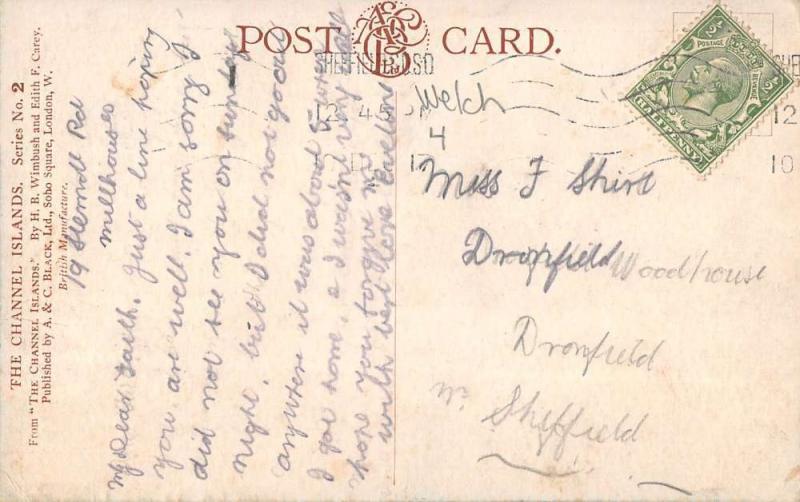 POST CARD.
THE CHANNEL ISLANDS. Series No. 2
From "THE CHANNEL ISLANDS." By H. B. Wimbush and Edith F. Carey.
Published by A. & C. BLACK, Ltd., Soho Square, London, W.
British Manufacture.
19 Rd
Millhouses
My Dear Faith. Just a line hoping
you are well. I am sorry I
did not see you on sunday
night, but I did not go out
anywhere it was about 8 when
I got home, & I wasn't very
hope you forgive me
with best love Evelyn
SHEFFIELD
12
12
10
POSTAGE
HALFPENNY
Welch
4
Miss F Shirt
Dronfield Woodhouse
Dronfield
Nr Sheffield